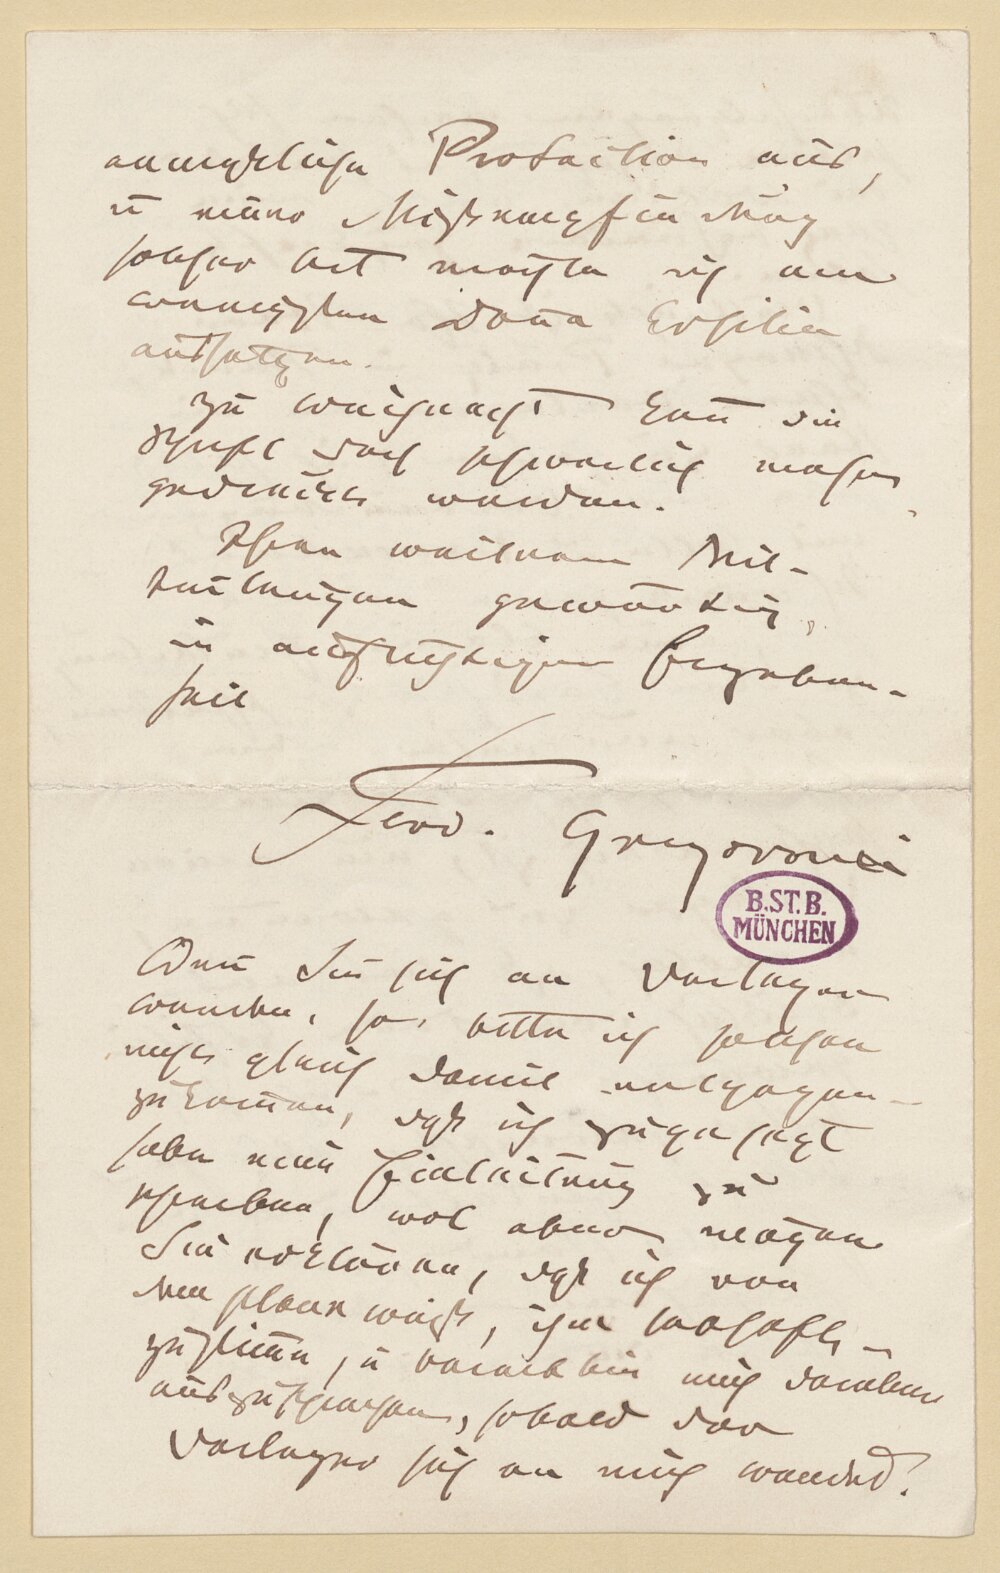 unerbetene Protection aus,
u einer Mißempfindung
solcher Art möchte ich am
wenigsten Dona Ersilia
aussetzen.
Zu Weihnacht kan̄ die
Schrift doch schwerlich mehr
gedruckt werden.
Ihren weiteren Mit-
theilungen gewärtig,
in aufrichtiger Ergeben-
heit
Ferd. Gregorovius
B.ST.B.
MÜNCHEN
Wen̄ Sie sich an Verleger
wenden, so bitte ich solchen
nicht gleich damit entgegen-
zukom̄en, daß ich zugesagt
habe eine Einleitung zu
schreiben, wol aber mögen
Sie erklären, daß ich von
dem plane weiß, ihm herzlich
zustim̄e, u bereit bin mich darüber
auszusprechen, sobald der
Verleger sich an mich wendet.